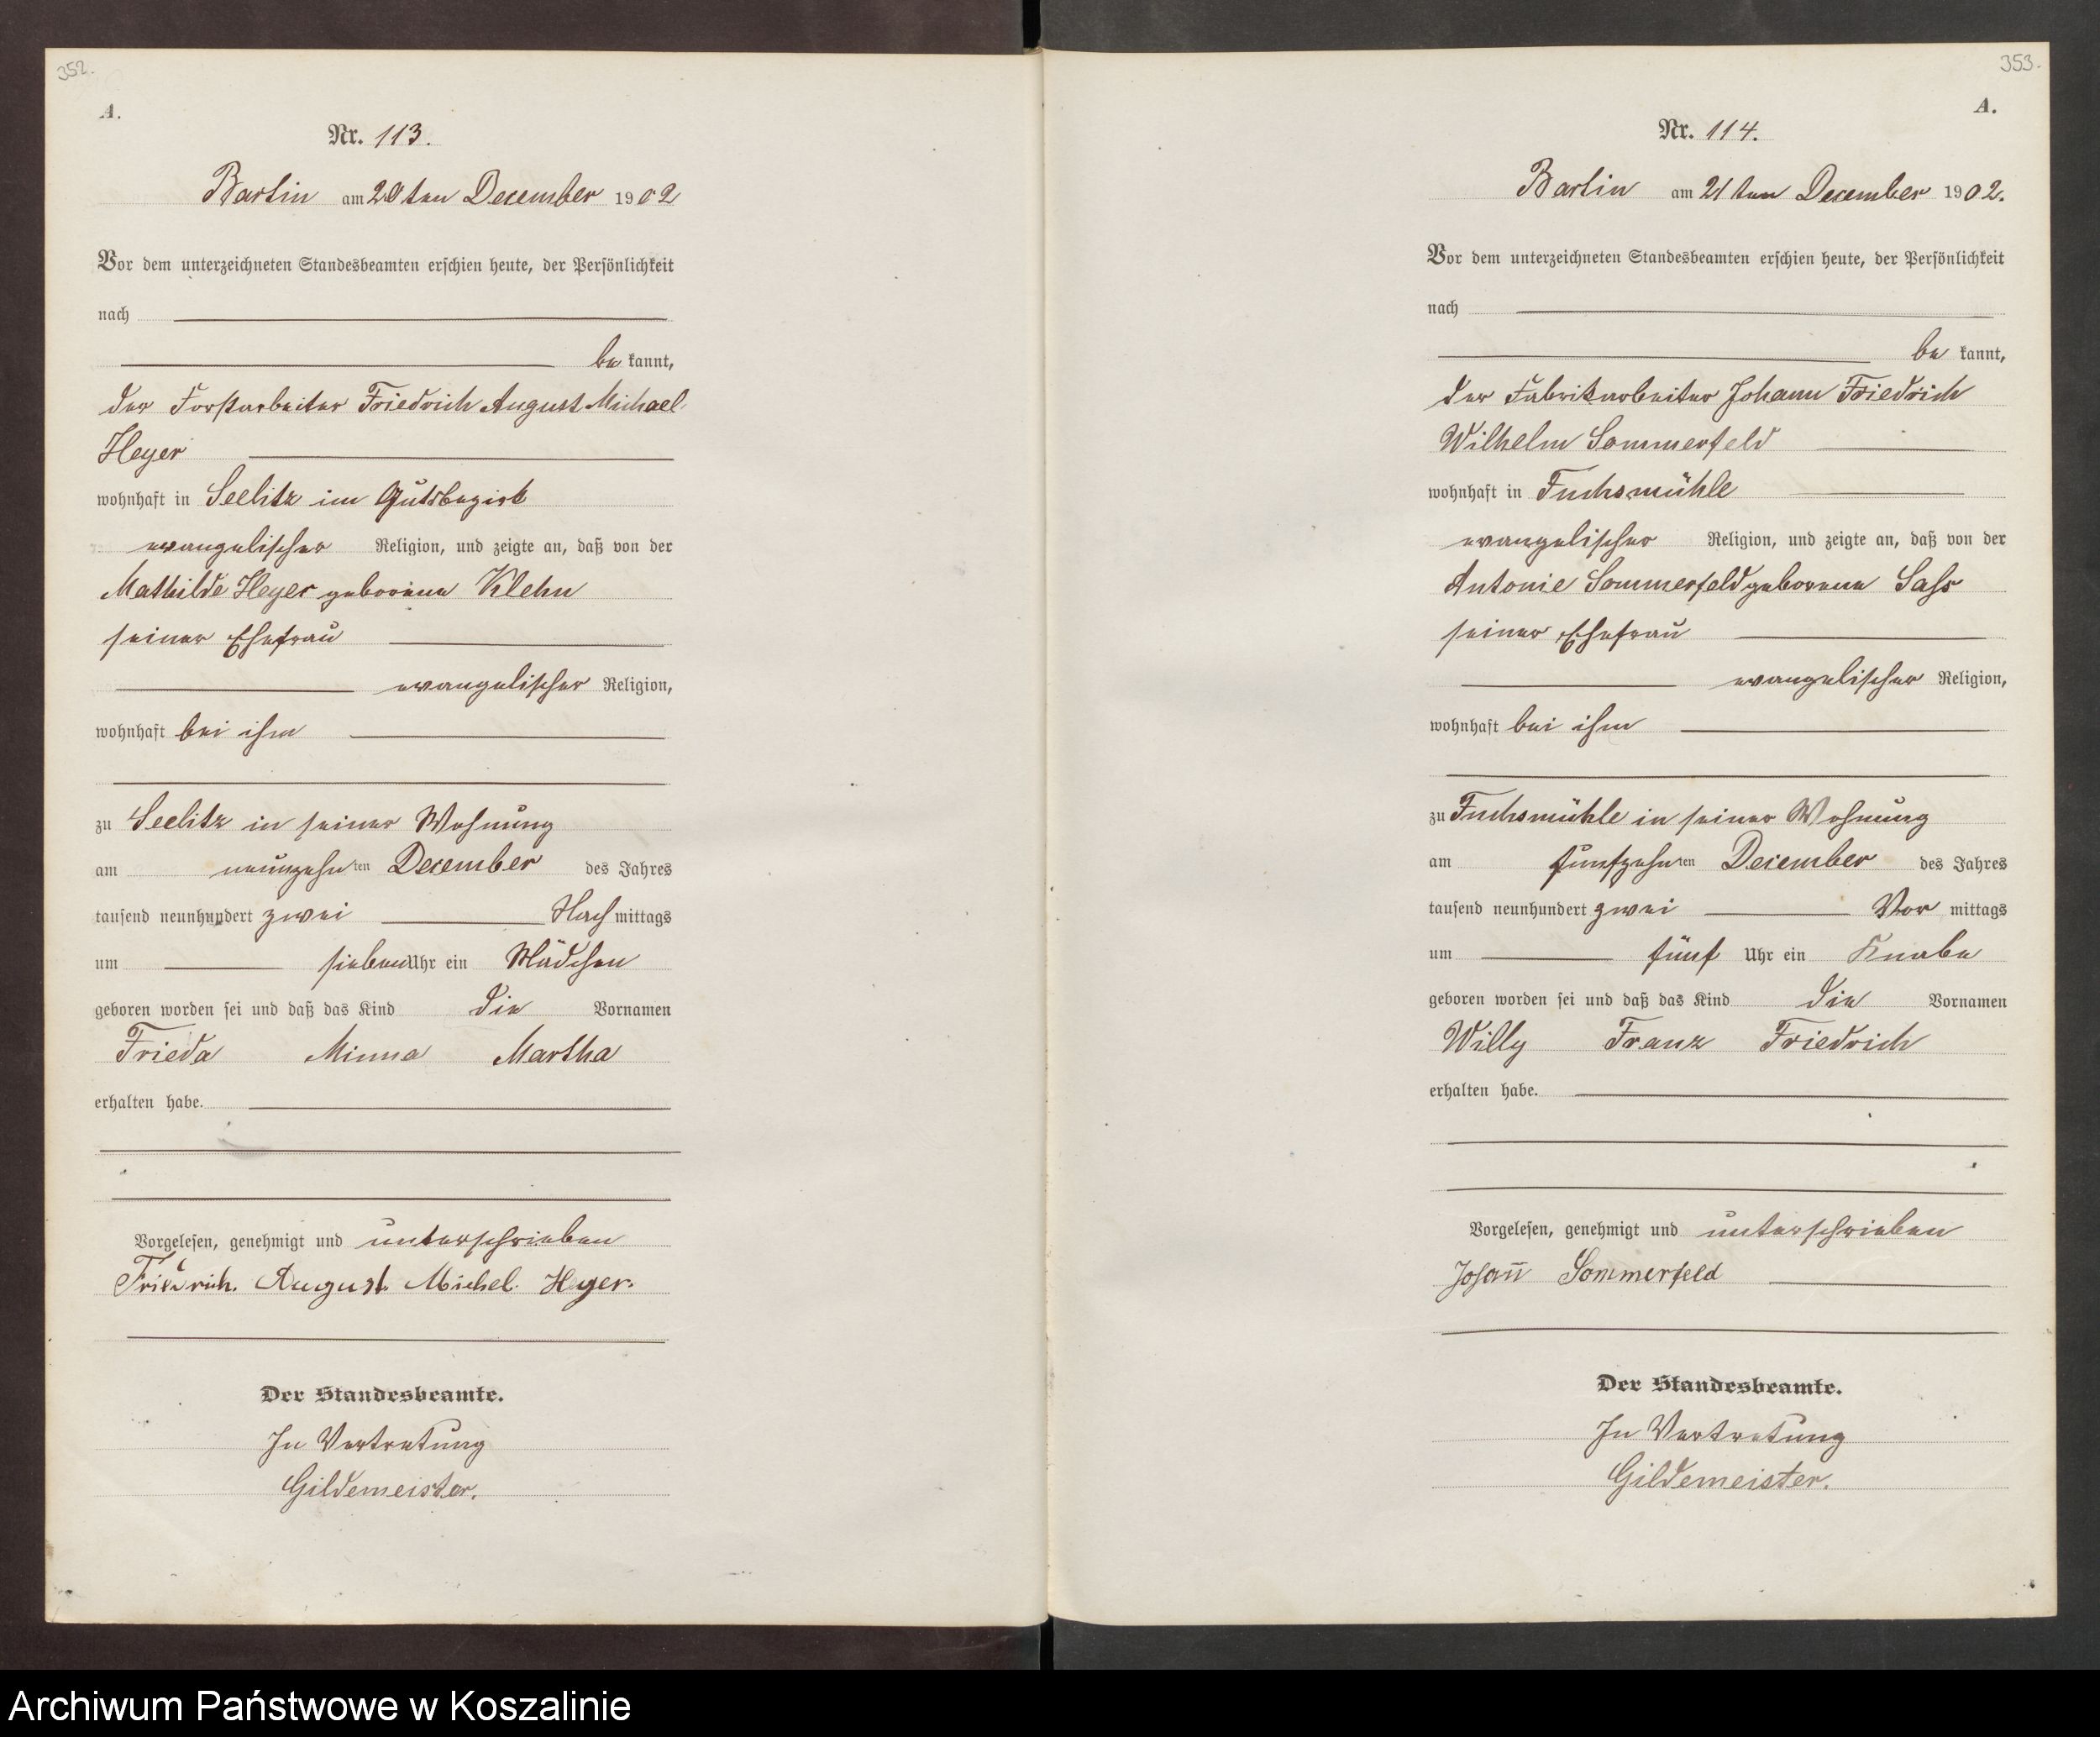 352.
A.
Nr. 113.
Bartin am 20ten December 1902
Vor dem unterzeichneten Standesbeamten erschien heute, der Persönlichkeit
nach
be kannt,
der Forstarbeiter Friedrich August Michael
Heyer
wohnhaft in Seelitz im Gutsbezirk
evangelischer Religion, und zeigte an, daß von der
Mathilde Heyer geborene Klehn
seiner Ehefrau
evangelischer Religion,
wohnhaft bei ihm
zu Seelitz in seiner Wohnung
am neunzehnten December des Jahres
tausend neunhundert zwei Nachmittags
um sieben Uhr ein Mädchen
geboren worden sei und daß das Kind die Vornamen
Frieda Minna Martha
erhalten habe.
Vorgelesen, genehmigt und unterschrieben
Friedrich. August. Michel. Heyer.
Der Standesbeamte.
In Vertretung
Gildemeister.
353.
A.
Nr. 114.
Bartin am 21ten December 1902.
Vor dem unterzeichneten Standesbeamten erschien heute, der Persönlichkeit
nach
be kannt,
der Fabrikarbeiter Johann Friedrich
Wilhelm Sommerfeld
wohnhaft in Fuchsmühle
evangelischer Religion, und zeigte an, daß von der
Antonie Sommerfeld geborene Sass
seiner Ehefrau
evangelischer Religion,
wohnhaft bei ihm
zu Fuchsmühle in seiner Wohnung
am fünfzehnten December des Jahres
tausend neunhundert zwei Vor mittags
um fünf Uhr ein Knabe
geboren worden sei und daß das Kind die Vornamen
Willy Franz Friedrich
erhalten habe.
Vorgelesen, genehmigt und unterschrieben
Johann Sommerfeld
Der Standesbeamte.
In Vertretung
Gildemeister.
Archiwum Państwowe w Koszalinie